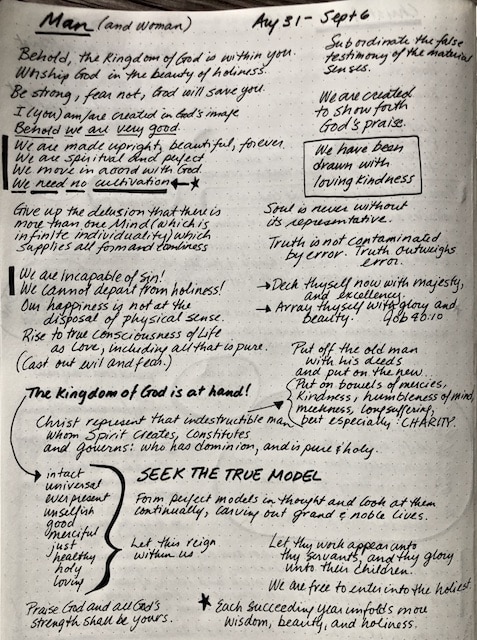 Man (and Woman)
Aug 31 - Sept 6
Behold, the Kingdom of God is within you.
Worship God in the beauty of holiness.
Be strong, fear not, God will save you.
I (you) am/are created in God's image
Behold we are very good.
We are made upright, beautiful, forever.
We are spiritual and perfect
We move in accord with God.
We need no cultivation ← ★
Give up the delusion that there is
more than one Mind (which is
infinite individuality) which
supplies all form and comliness
We are Incapable of Sin!
We cannot depart from holiness!
Our happiness is not at the
disposal of physical sense.
Rise to true consciousness of Life
as Love, including all that is pure.
(Cast out evil and fear.)
Subordinate the false
testimony of the material
senses.
We are created
to show forth
God's praise.
We have been
drawn with
loving kindness
Soul is never without
its representative.
Truth is not contaminated
by error. Truth outweighs
error.
→ Deck thyself now with majesty,
and excellency.
→ Array thyself with glory and
beauty. Job 40:10
Put off the old man
with his deeds
and put on the new...
Put on bowels of mercies,
Kindness, humbleness of mind,
meekness, longsuffering,
but especially: CHARITY.
The Kingdom of God is at hand!
Christ represent that indestructible man
whom Spirit creates, constitutes
and governs: who has dominion, and is pure & holy.
→ intact
universal
ever present
unselfish
good
merciful
just
healthy
holy
loving
Let this reign
within us
SEEK THE TRUE MODEL
Form perfect models in thought and look at them
continually, carving out grand & noble lives.
Let thy work appear unto
thy servants, and thy glory
unto their children.
We are free to enter into the holiest
Praise God and all God's
strength shall be yours.
★ Each succeeding year unfolds more
wisdom, beauty, and holiness.